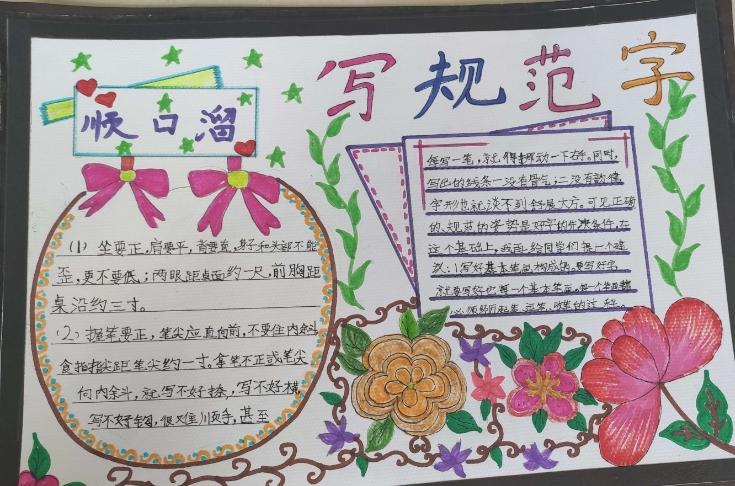 写规范字
顺口溜
(1) 坐要正,肩要平,背要直,身子和头部不能
歪,更不要低;两眼距桌面约一尺,前胸距
桌沿约三寸。
(2) 握笔要正,笔尖应直向前,不要往内斜
食指指尖距笔尖约一寸。拿笔不正或笔尖
向内斜,就写不好捺,写不好横
写不好钩,很难顺手,甚至
每写一笔,就得挪动一下右手。同时,
写出的线条一没有骨气,二没有韵律
字形也就谈不到舒展大方。可见正确
的、规范的姿势是好字的先决条件。在
这个基础上,我再给同学们提一个建
议:写好基本笔画构成的,要写好字,
就要写好每一个基本笔画。每一个笔画都
必须经历起笔、运笔、收笔的过程。